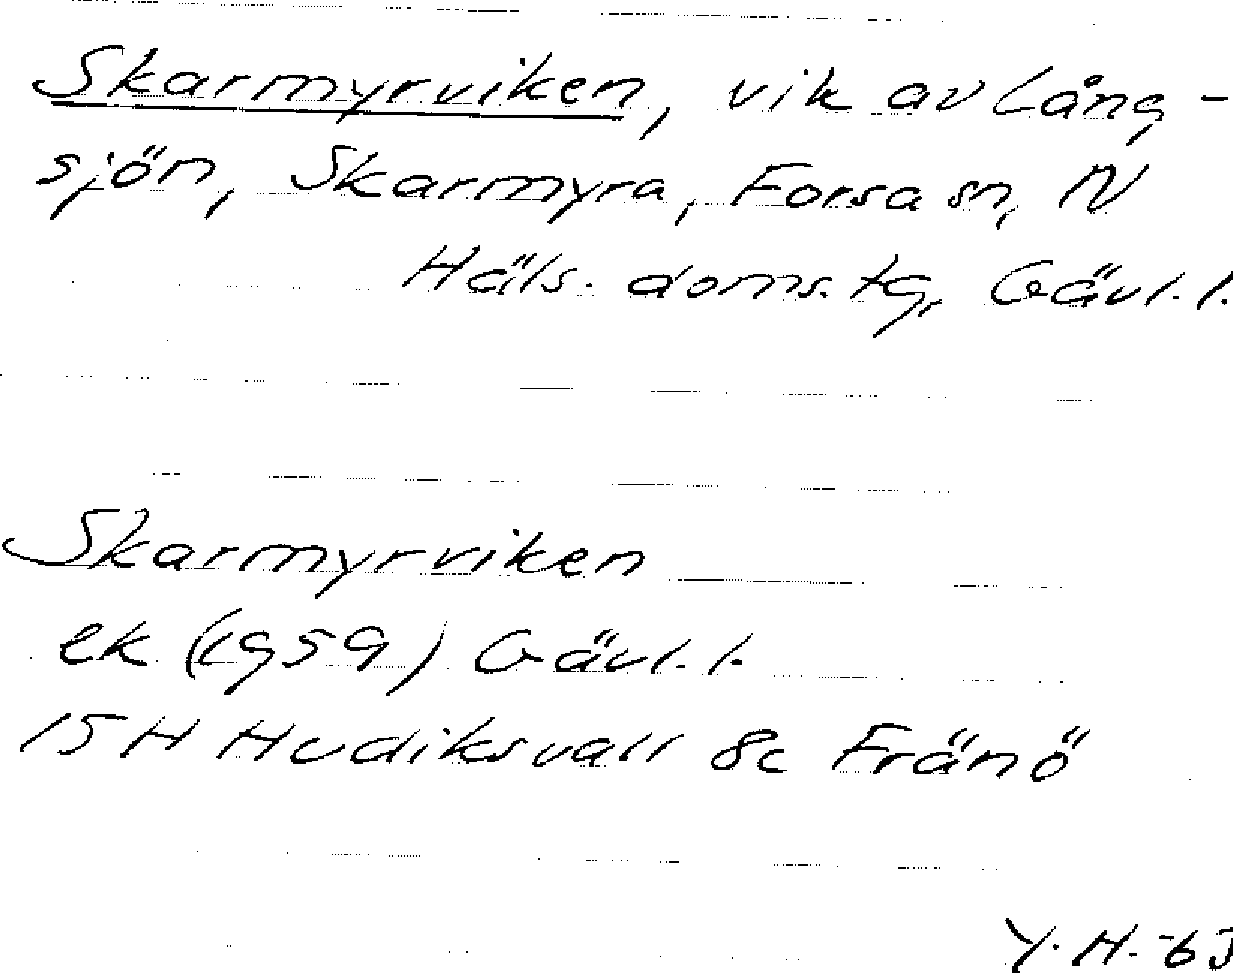 Skarmyrviken, vik av Lång-
sjön, Skarmyra, Forsa sn, N
Häls. doms. tg, Gävl. l.
Skarmyrviken
ek (1959) Gävl. l.
15H Hudiksvall 8c Fränö
Y. H. -63